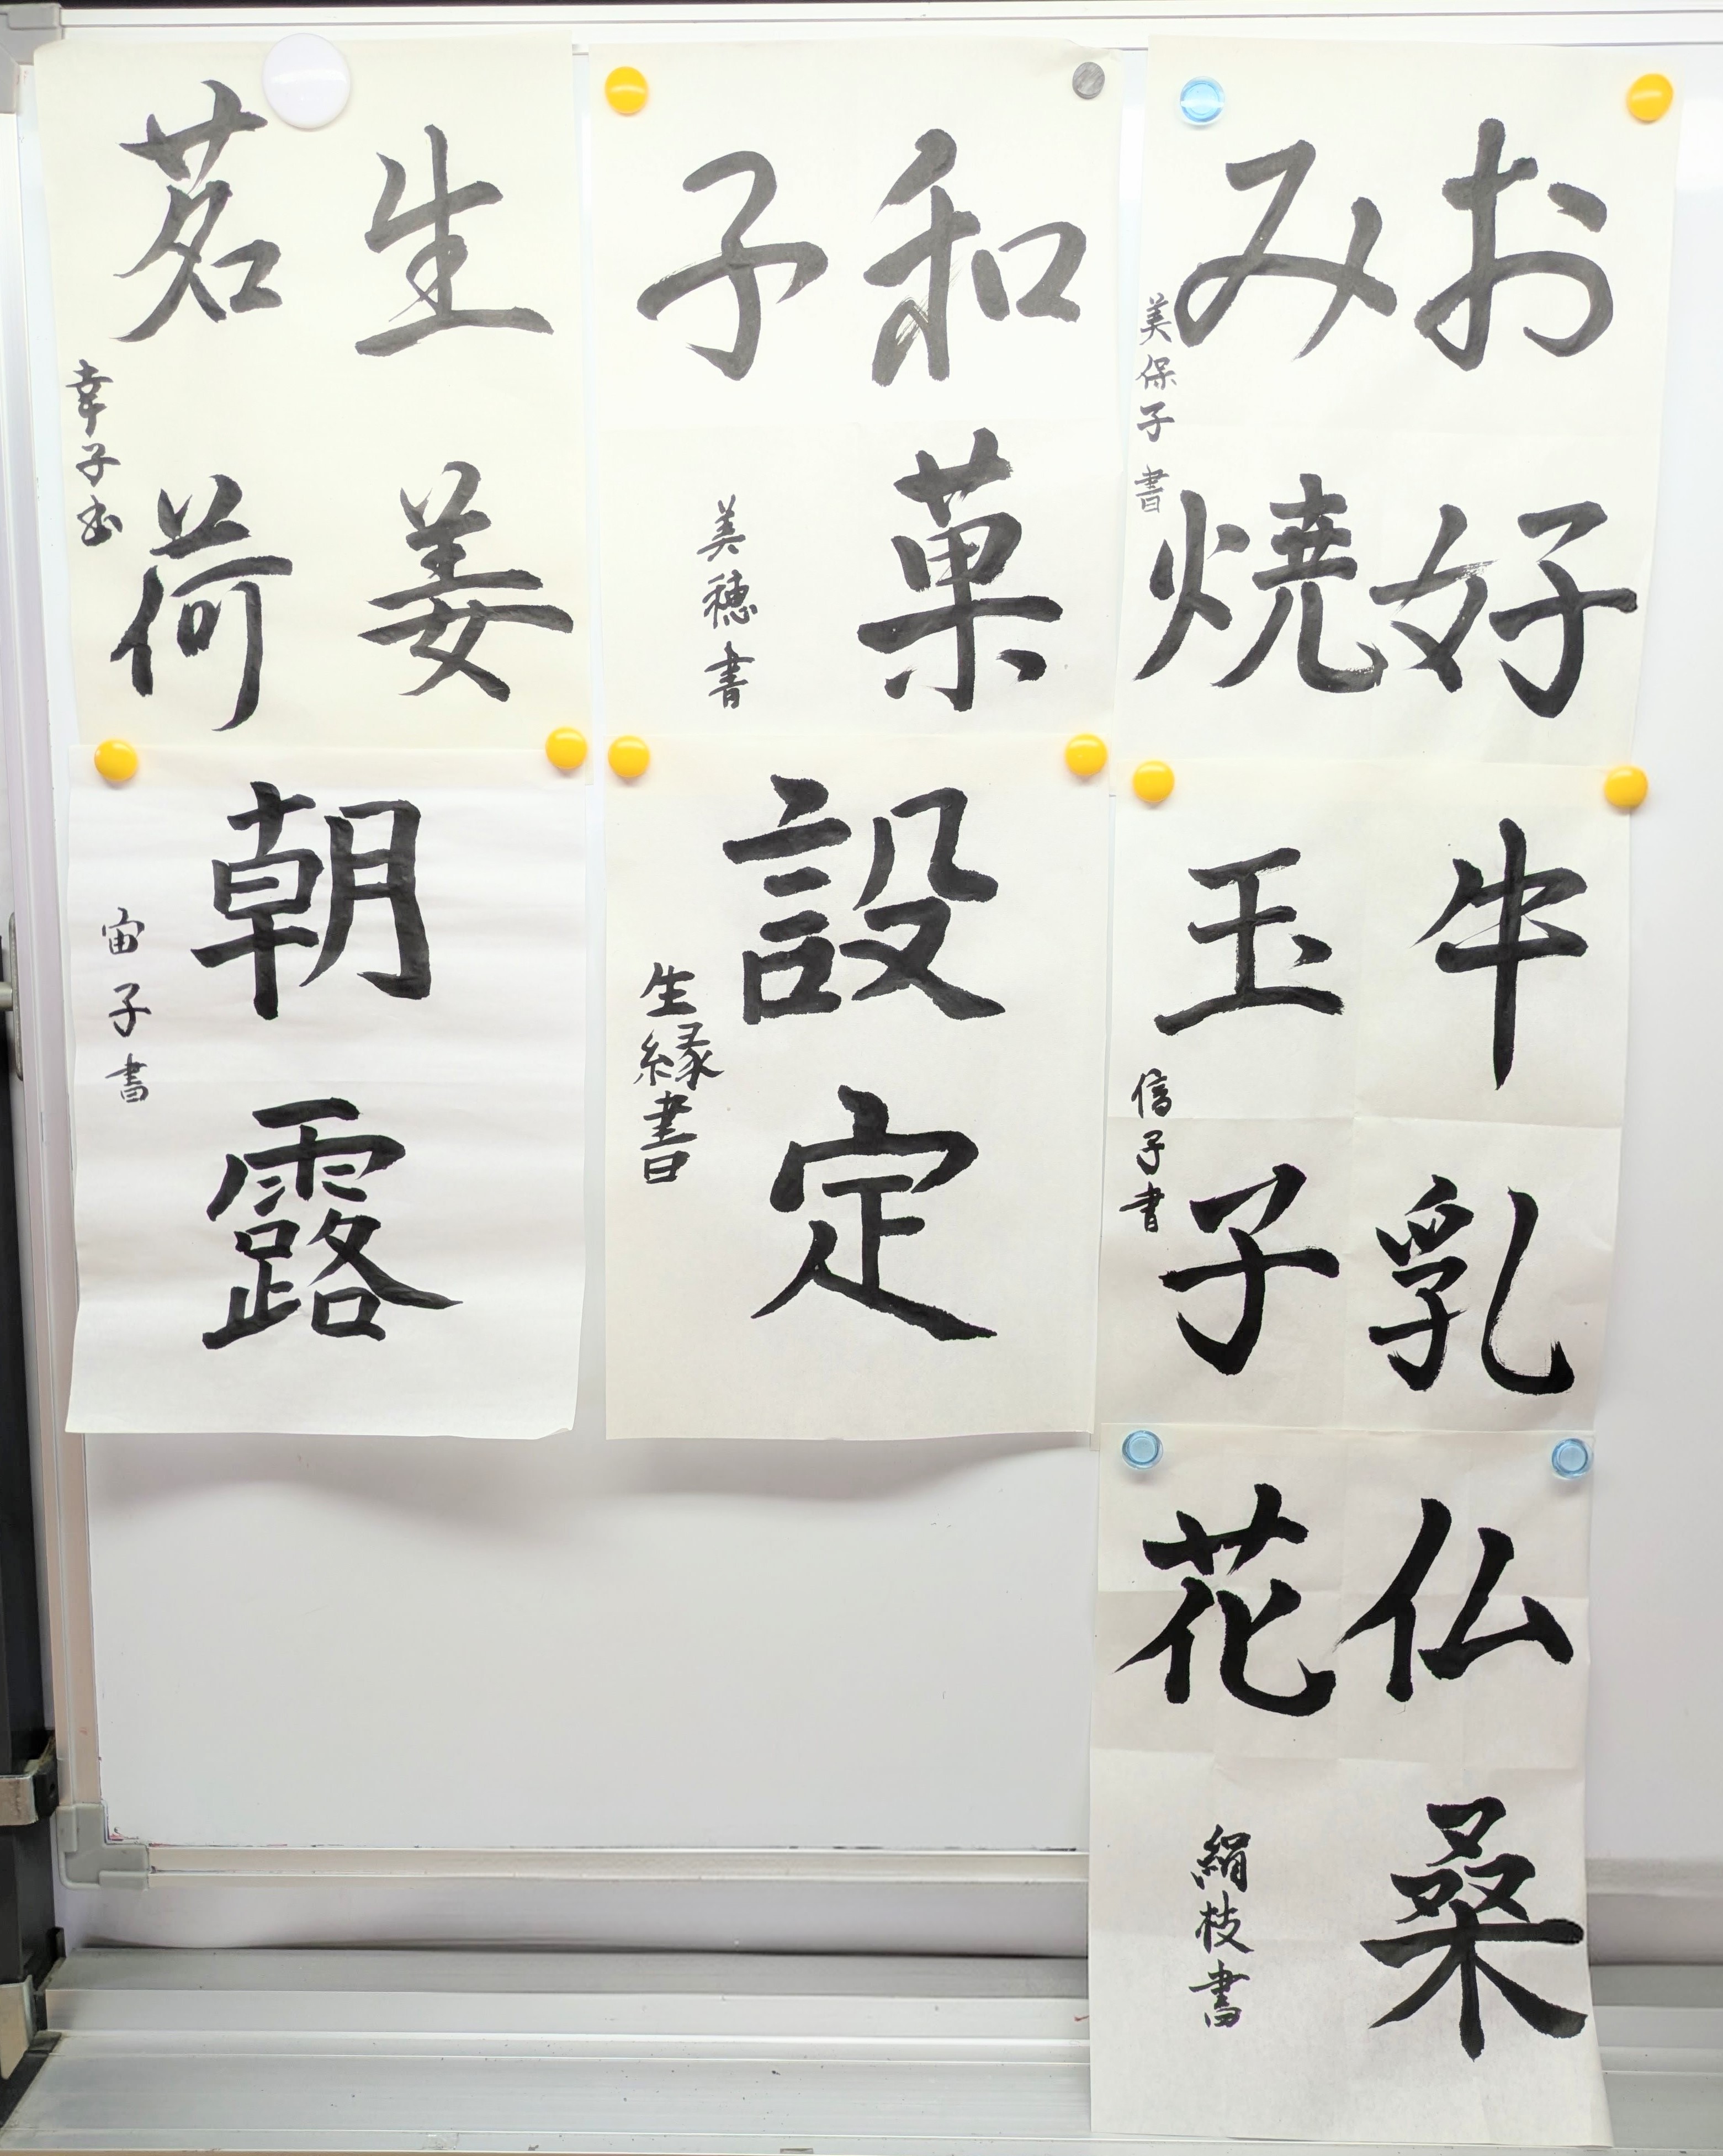 お好
み焼
美保子書
和菓
子
美穂書
生姜
茗荷
幸子書
牛乳
玉子
信子書
設定
生縁書
朝露
宙子書
仏桑
花
絹枝書